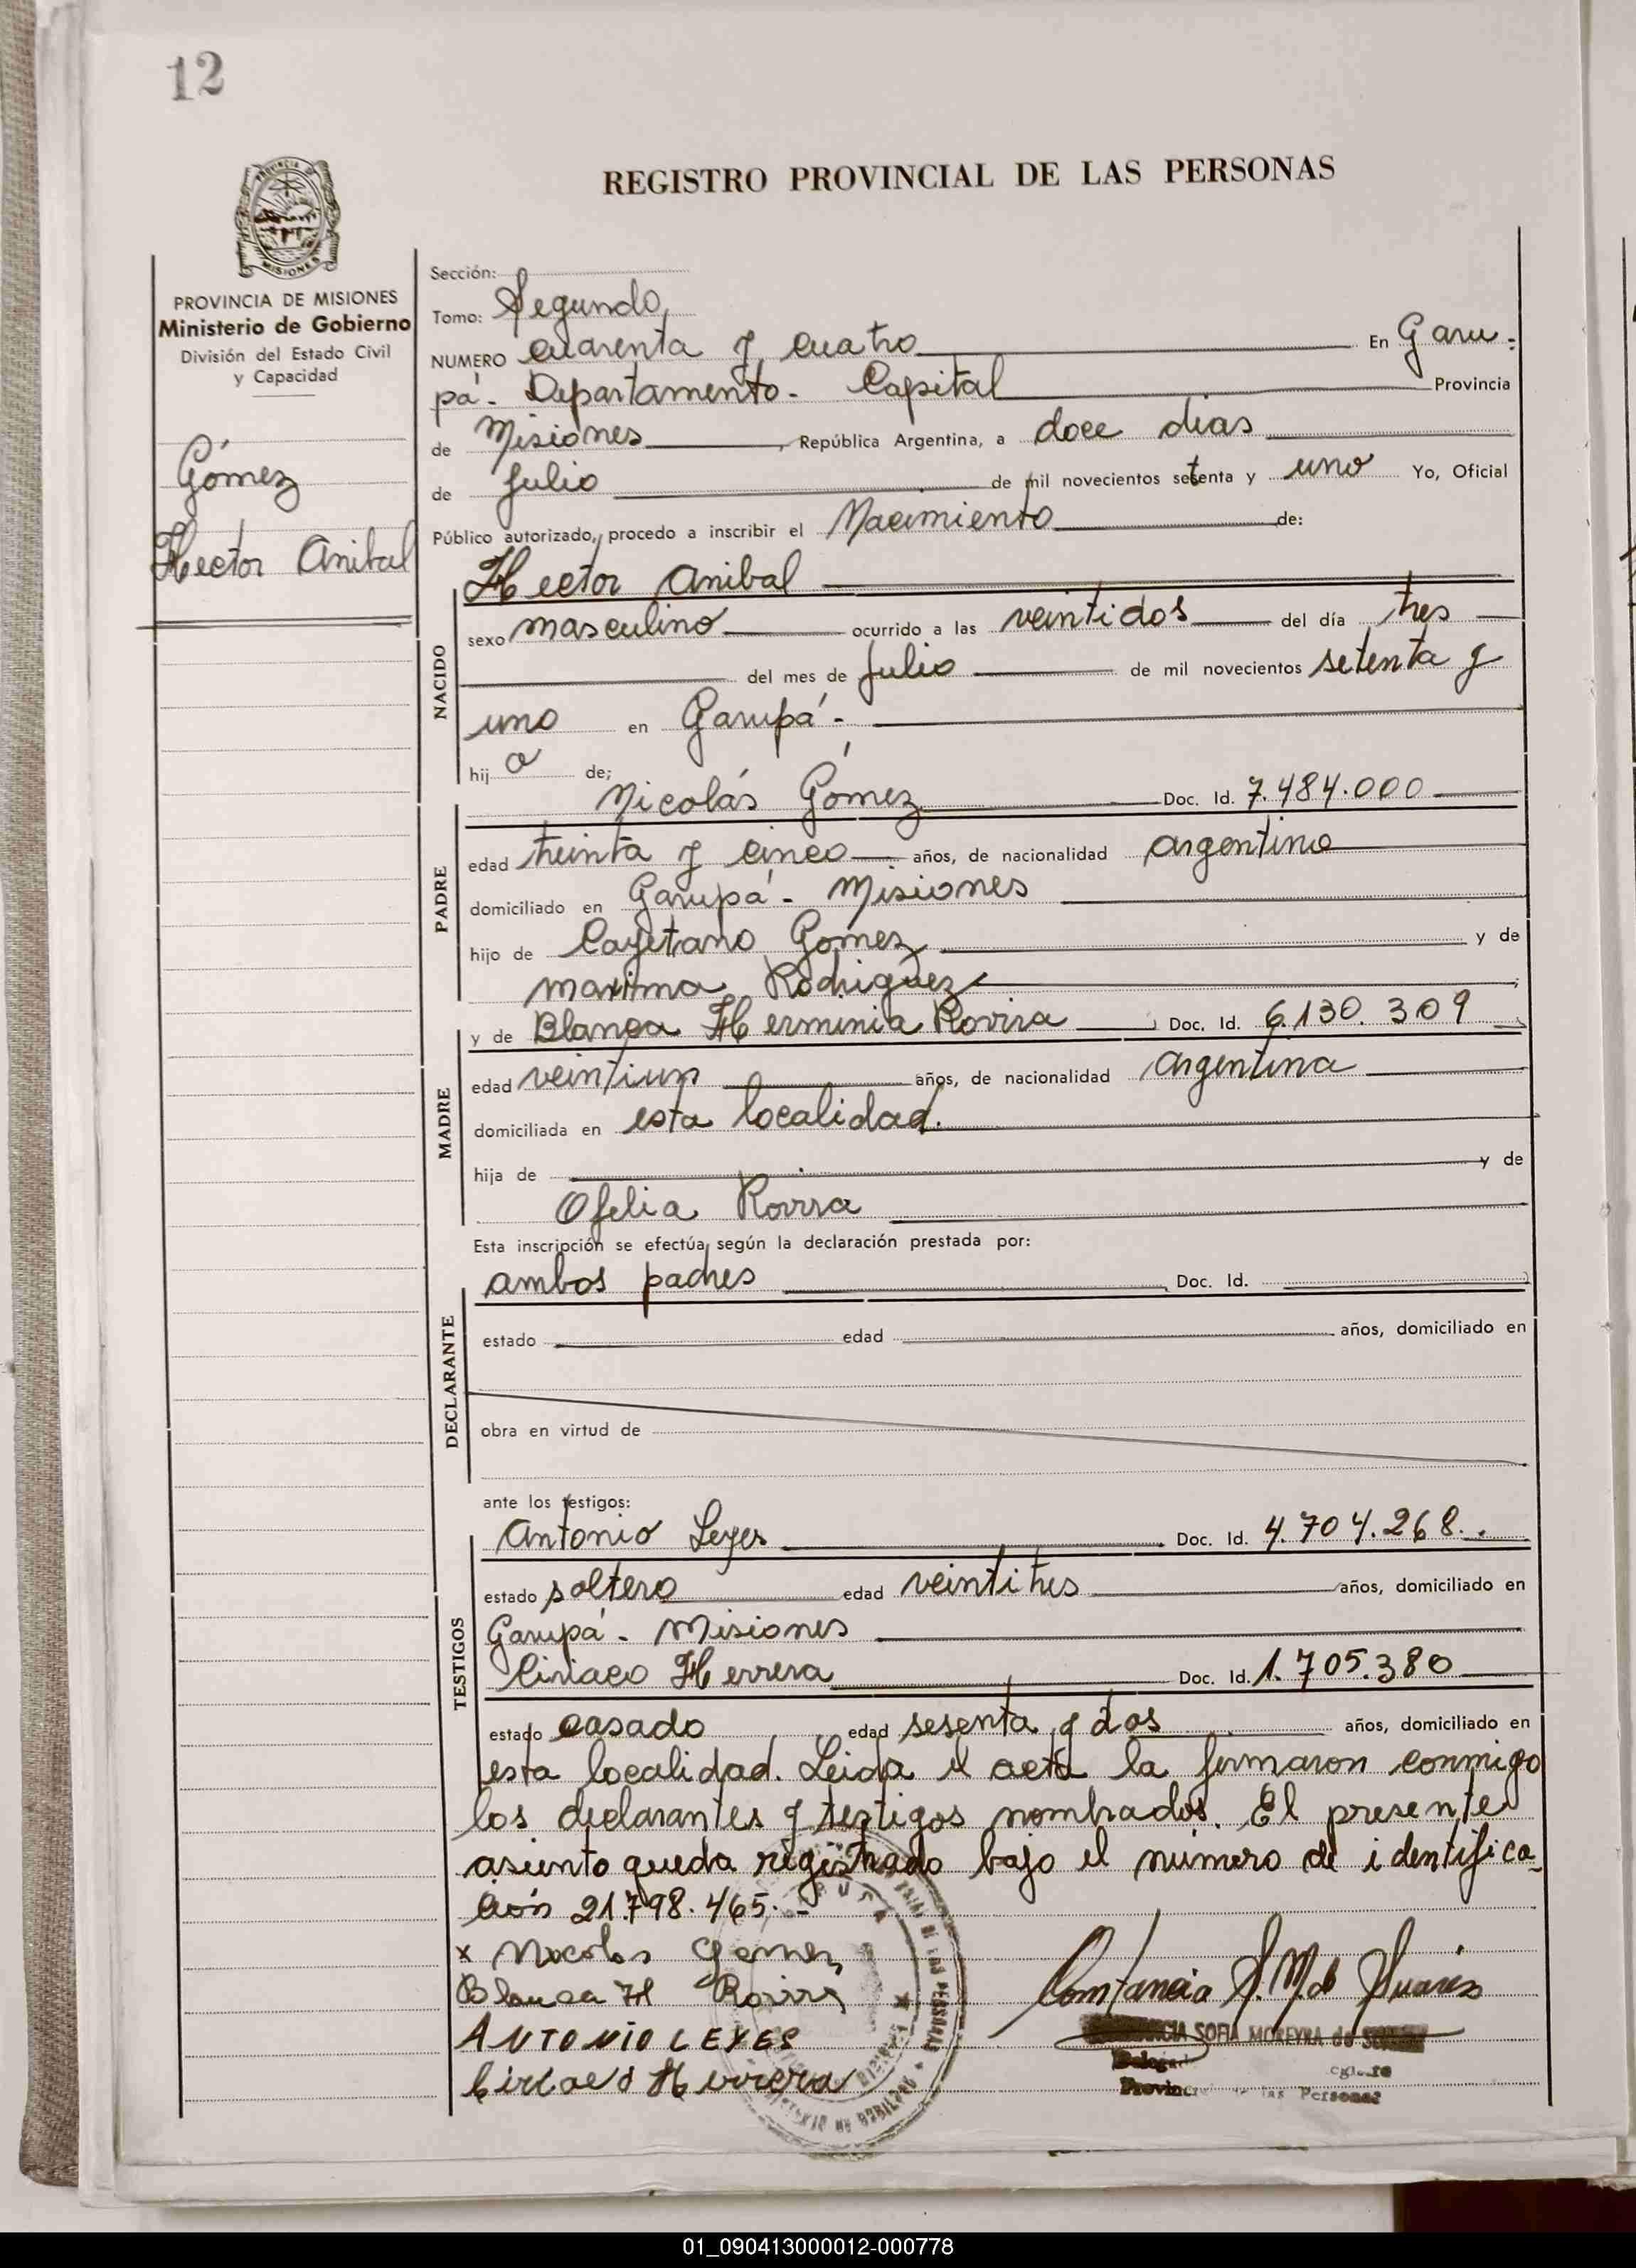 12
REGISTRO PROVINCIAL DE LAS PERSONAS
MISIONES
PROVINCIA DE MISIONES
Ministerio de Gobierno
División del Estado Civil
y Capacidad
Gómez
Hector Anibal
Sección:
Tomo: Segundo
NUMERO cuarenta y cuatro En Garu-
pá. Departamento. Capital Provincia
de Misiones, República Argentina, a doce dias
de Julio de mil novecientos setenta y uno Yo, Oficial
Público autorizado, procedo a inscribir el Nacimiento de:
NACIDO
Hector Anibal
sexo masculino ocurrido a las veintidos del día tres
del mes de Julio de mil novecientos setenta y
uno en Garupá.
hij o de;
PADRE
Nicolás Gómez Doc. Id. 7.484.000
edad treinta y cinco años, de nacionalidad argentino
domiciliado en Garupá. Misiones
hijo de Cayetano Gomez y de
maxima Rodriguez
MADRE
y de Blanca Herminia Rovira Doc. Id. 6.130.309
edad veintiun años, de nacionalidad argentina
domiciliada en esta localidad.
hija de y de
Ofelia Rovira
Esta inscripción se efectúa según la declaración prestada por:
DECLARANTE
ambos padres Doc. Id.
estado edad años, domiciliado en
obra en virtud de
ante los testigos:
TESTIGOS
Antonio Leyes Doc. Id. 4.704.268.
estado soltero edad veintitres años, domiciliado en
Garupá. Misiones
Ciriaco Herrera Doc. Id. 1.705.380
estado casado edad sesenta y dos años, domiciliado en
esta localidad. Leida el acta la firmaron conmigo
los declarantes y testigos nombrados. El presente
asiento queda registrado bajo el número de identifica-
ción 21.798.465.
x Nicolas Gomez
Blanca H Rovira
ANTONIO LEYES
Ciriaco Herrera
Constancia S. M de Suarez
SOFIA MOREYRA de
Provinc de las Personas
01_090413000012-000778